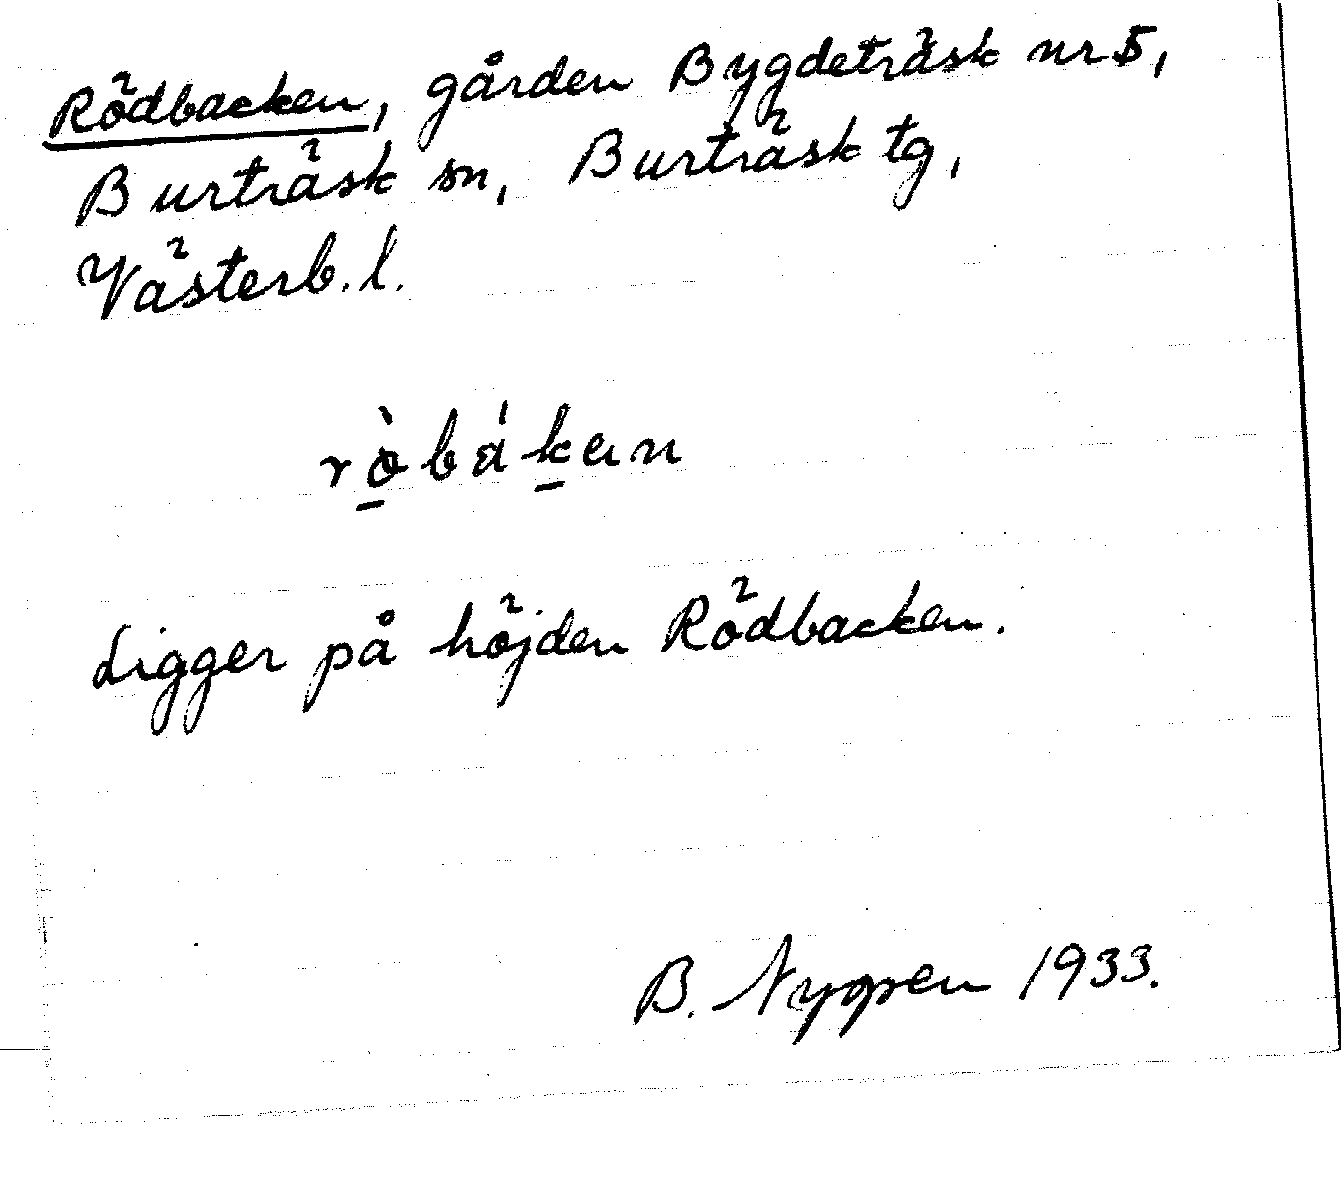 Rödbacken, gården Bygdeträsk nr 5,
Burträsk sn, Burträsk tg,
Västerb. l.
rò̱bá́ḵen
Ligger på höjden Rödbacken.
B. Nygren 1933.